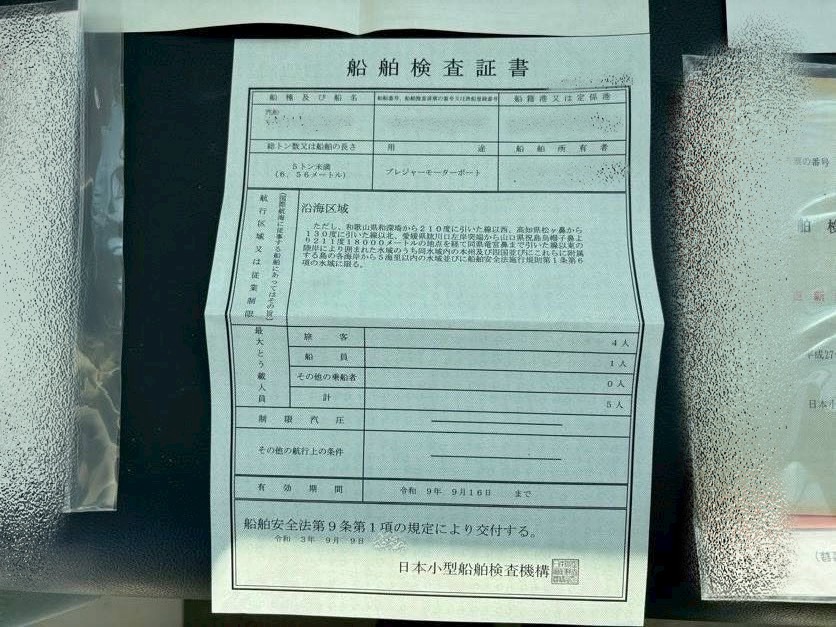 船舶検査証書
船種及び船名
船舶番号、船舶検査済票の番号又は漁船登録番号
船籍港又は定係港
汽船
総トン数又は船舶の長さ
用途
船舶所有者
5トン未満
(6.56メートル)
プレジャーモーターボート
航行区域又は従業制限
(国際航海に従事する船舶にあってはその旨)
沿海区域
ただし、和歌山県和深埼から210度に引いた線以西、高知県松ヶ鼻から
130度に引いた線以北、愛媛県肱川口左岸突端から山口県祝島烏帽子鼻よ
り211度18000メートルの地点を経て同県竜宮鼻まで引いた線以東の
陸岸により囲まれた水域のうち同水域内の本州及び四国並びにこれらに附属
する島の各海岸から5海里以内の水域並びに船舶安全法施行規則第1条第6
項の水域に限る。
最大とう載人員
旅客
4人
船員
1人
その他の乗船者
0人
計
5人
制限汽圧
その他の航行上の条件
有効期間
令和 9年 9月16日 まで
船舶安全法第9条第1項の規定により交付する。
令和 3年 9月 9日
日本小型船舶検査機構
票の番号
舶
平成27
日本小